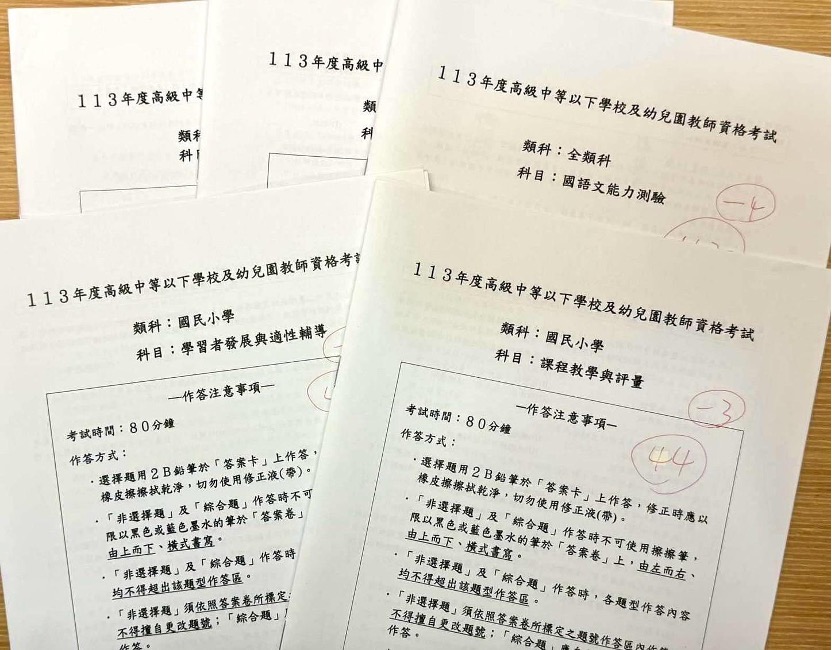 113年度高級中等
類科
科目
113年度高級中
類
科
113年度高級中等以下學校及幼兒園教師資格考試
類科：全類科
科目：國語文能力測驗
-4
113年度高級中等以下學校及幼兒園教師資格考試
類科：國民小學
科目：學習者發展與適性輔導
—作答注意事項—
考試時間：80分鐘
作答方式：
·選擇題用2B鉛筆於「答案卡」上作答，
橡皮擦擦拭乾淨，切勿使用修正液(帶)。
·「非選擇題」及「綜合題」作答時不可
限以黑色或藍色墨水的筆於「答案卷」
由上而下、橫式書寫。
·「非選擇題」及「綜合題」作答時
均不得超出該題型作答區。
·「非選擇題」須依照答案卷所標定
不得擅自更改題號；「綜合題」
作答。
113年度高級中等以下學校及幼兒園教師資格考試
類科：國民小學
科目：課程教學與評量
-3
44
—作答注意事項—
考試時間：80分鐘
作答方式：
·選擇題用2B鉛筆於「答案卡」上作答，修正時應以
橡皮擦擦拭乾淨，切勿使用修正液(帶)。
·「非選擇題」及「綜合題」作答時不可使用擦擦筆，
限以黑色或藍色墨水的筆於「答案卷」上，由左而右、
由上而下、橫式書寫。
·「非選擇題」及「綜合題」作答時，各題型作答內容
均不得超出該題型作答區。
·「非選擇題」須依照答案卷所標定之題號作答區內作答
不得擅自更改題號；「綜合題」
作答。